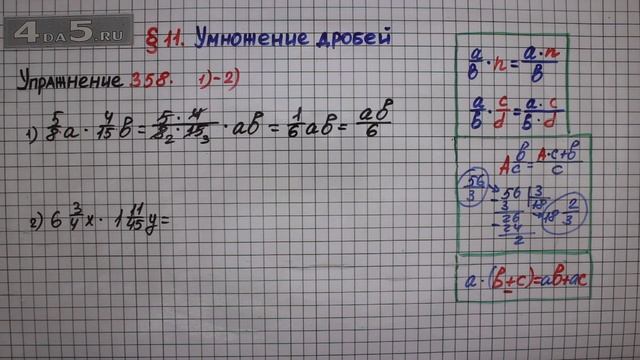 4DA5.RU
§ 11. Умножение дробей
Упражнение 358. 1)-2)
1) 5/8 a · 4/15 b = 5·4/8₂·15₃ · ab = 1/6 ab = ab/6
2) 6 3/4 x · 1 11/45 y =
a/b · n = a·n/b
a/b · c/d = a·c/b·d
A b/c = A·c+b/c
56/3
56 | 3
3 | 18
26
24
2
18 2/3
a·(b+c)=ab+ac